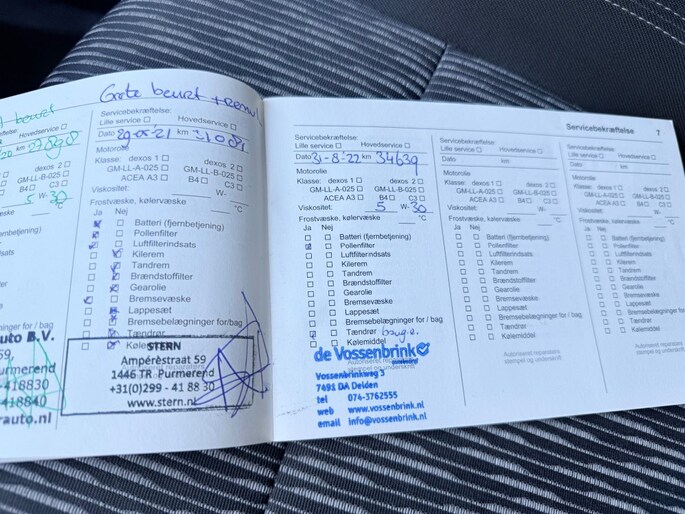 beurt
27890
5 W- 30
auto B.V.
59,
urmerend
418830
418840
rauto.nl
Grote beurt
Servicebekræftelse:
Lille service Hovedservice
Dato 29-05-'21 km 31081
Motorolie
Klasse: dexos 1 dexos 2
GM-LL-A-025 GM-LL-B-025
ACEA A3 B4 C3
Viskositet: W-
Frostvæske, kølervæske °C
Ja Nej
Batteri (fjernbetjening)
Pollenfilter
Luftfilterindsats
Kilerem
Tandrem
Brændstoffilter
Gearolie
Bremsevæske
Lappesæt
Bremsebelægninger for/bag
Tændrør
STERN
Ampèrèstraat 59
1446 TR Purmerend
+31(0)299 - 41 88 30
www.stern.nl
Servicebekræftelse 7
Servicebekræftelse:
Lille service Hovedservice
Dato 31-8-'22 km 34639
Motorolie
Klasse: dexos 1 dexos 2
GM-LL-A-025 GM-LL-B-025
ACEA A3 B4 C3
Viskositet: 5 W- 30
Frostvæske, kølervæske °C
Ja Nej
Batteri (fjernbetjening)
Pollenfilter
Luftfilterindsats
Kilerem
Tandrem
Brændstoffilter
Gearolie
Bremsevæske
Lappesæt
Bremsebelægninger for/bag
Tændrør
Kølemiddel
de Vossenbrink
Vossenbrinkweg 3
7491 DA Delden
tel 074-3762555
web www.vossenbrink.nl
email info@vossenbrink.nl
Servicebekræftelse:
Lille service Hovedservice
Dato km
Motorolie
Klasse: dexos 1 dexos 2
GM-LL-A-025 GM-LL-B-025
ACEA A3 B4 C3
Viskositet: W-
Frostvæske, kølervæske °C
Ja Nej
Batteri (fjernbetjening)
Pollenfilter
Luftfilterindsats
Kilerem
Tandrem
Brændstoffilter
Gearolie
Bremsevæske
Lappesæt
Bremsebelægninger for/bag
Tændrør
Kølemiddel
Autoriseret reparatørs
stempel og underskrift
Servicebekræftelse:
Lille service Hovedservice
Dato km
Motorolie
Klasse: dexos 1 dexos 2
GM-LL-A-025 GM-LL-B-025
ACEA A3 B4 C3
Viskositet: W-
Frostvæske, kølervæske °C
Ja Nej
Batteri (fjernbetjening)
Pollenfilter
Luftfilterindsats
Kilerem
Tandrem
Brændstoffilter
Gearolie
Bremsevæske
Lappesæt
Bremsebelægninger for/bag
Tændrør
Kølemiddel
Autoriseret reparatørs
stempel og underskrift